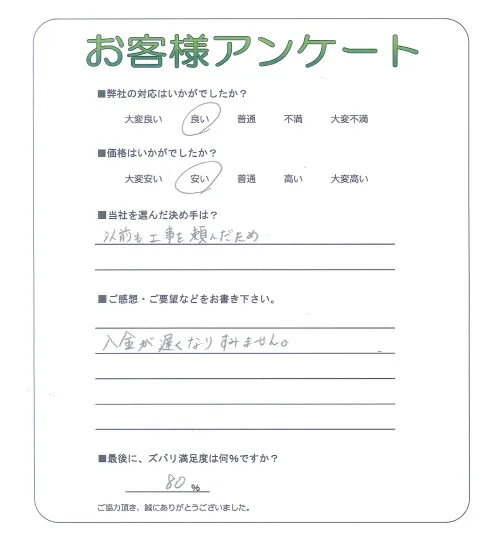 お客様アンケート
■弊社の対応はいかがでしたか？
大変良い 良い 普通 不満 大変不満
■価格はいかがでしたか？
大変安い 安い 普通 高い 大変高い
■当社を選んだ決め手は？
以前も工事を頼んだため
■ご感想・ご要望などをお書き下さい。
入金が遅くなりすみません。
■最後に、ズバリ満足度は何％ですか？
80 ％
ご協力頂き、誠にありがとうございました。